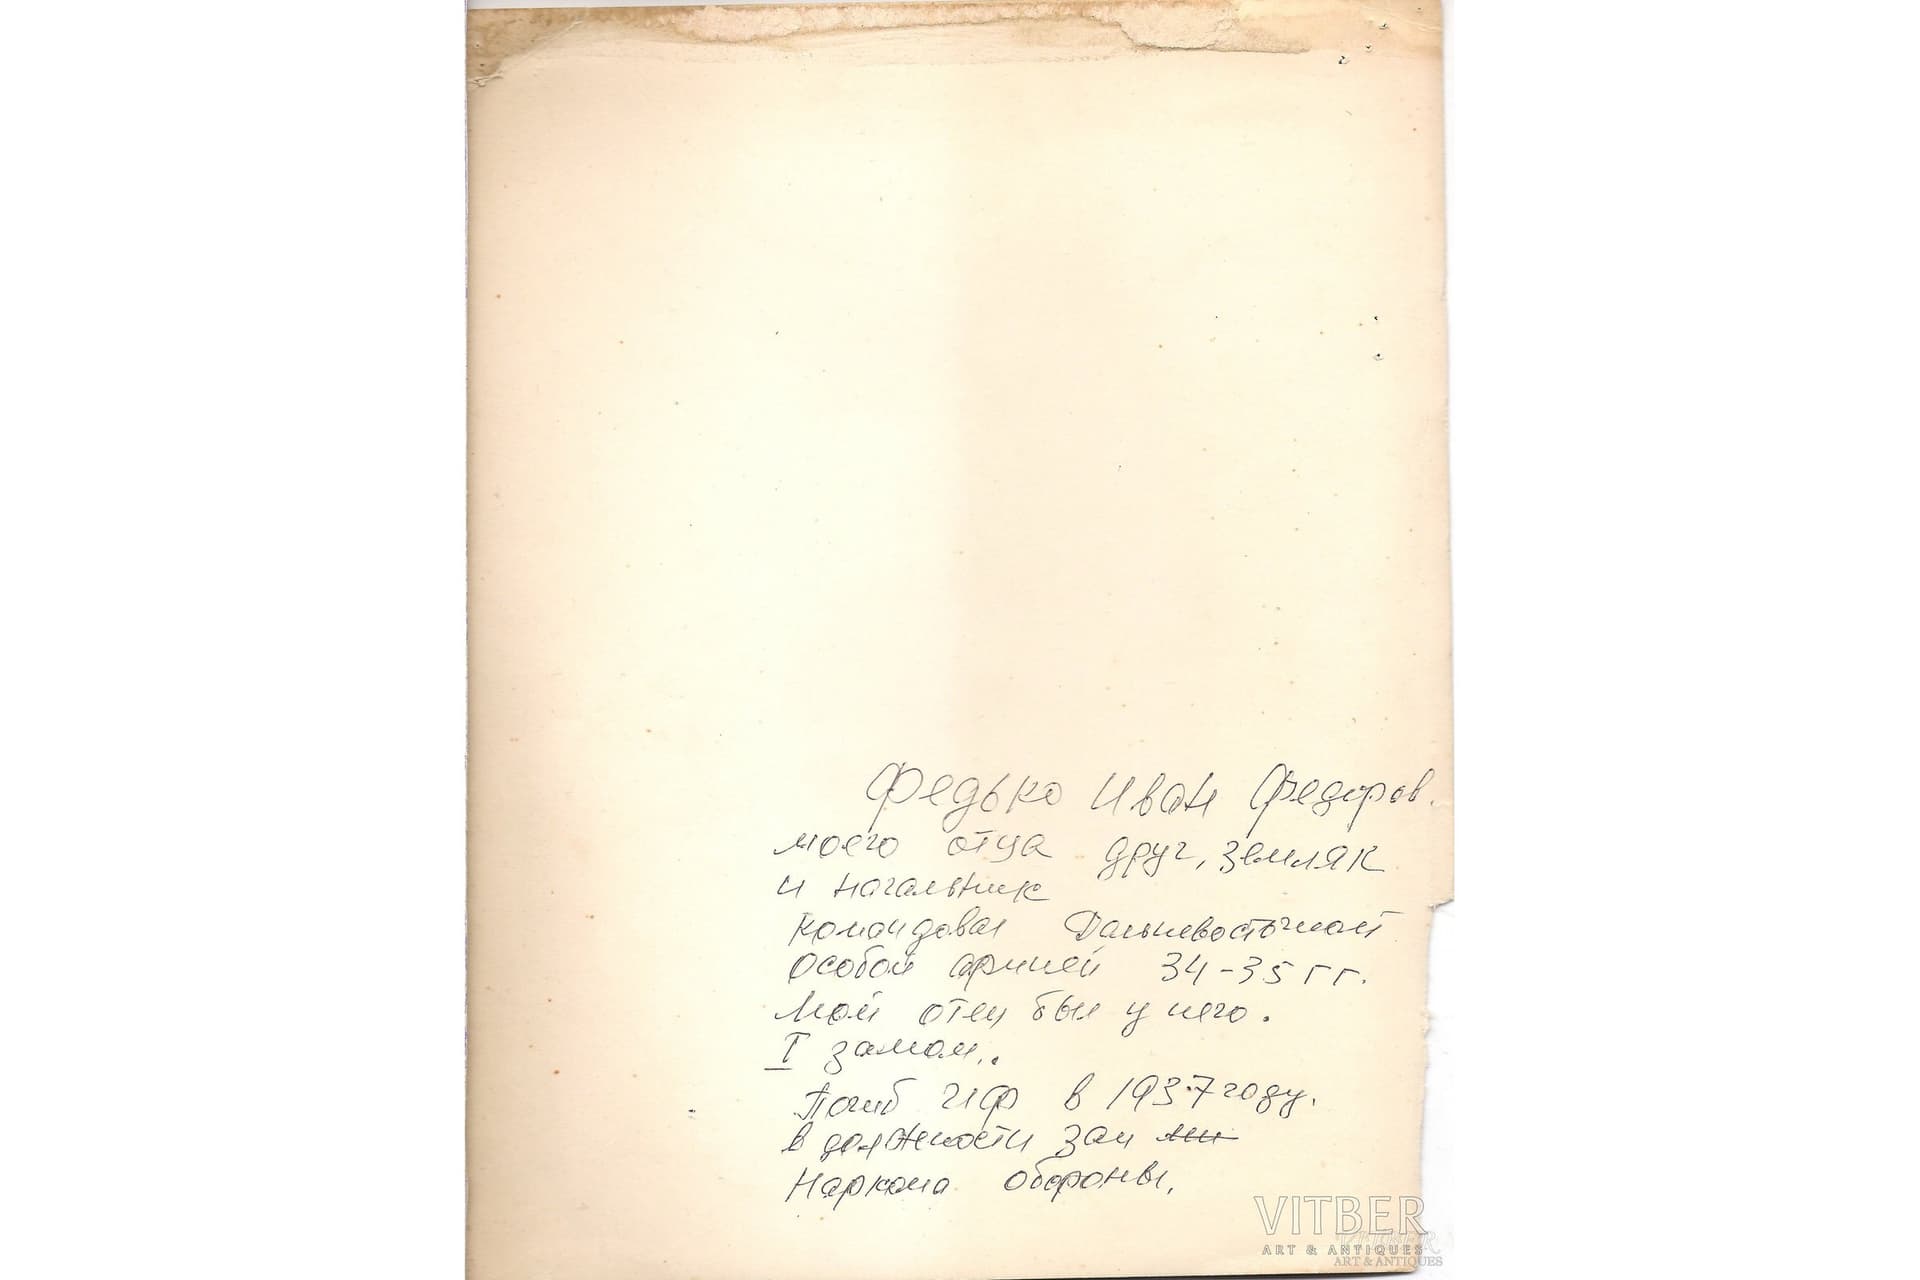 Федько Иван Федоров.
моего отца друг, земляк
и начальник
командовал Дальневосточной
особой армией 34-35 гг.
Мой отец был у него.
I замом..
Погиб ИФ в 1937 году.
в должности зам ми
Наркома обороны.
VITBER
ART & ANTIQUES
VITBER
ART & ANTIQUES